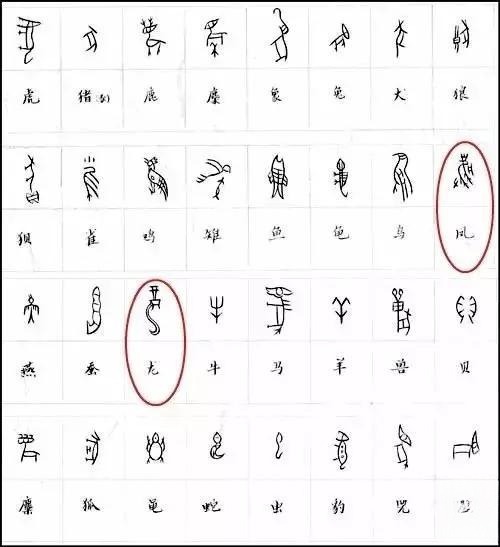 虎 猪(豕) 鹿 麇 象 兔 犬 狼
狈 雀 鸡 雉 鱼 龟 鸟 凤
燕 蚕 龙 牛 马 羊 兽 贝
麋 狐 黾 蛇 虫 豹 兕